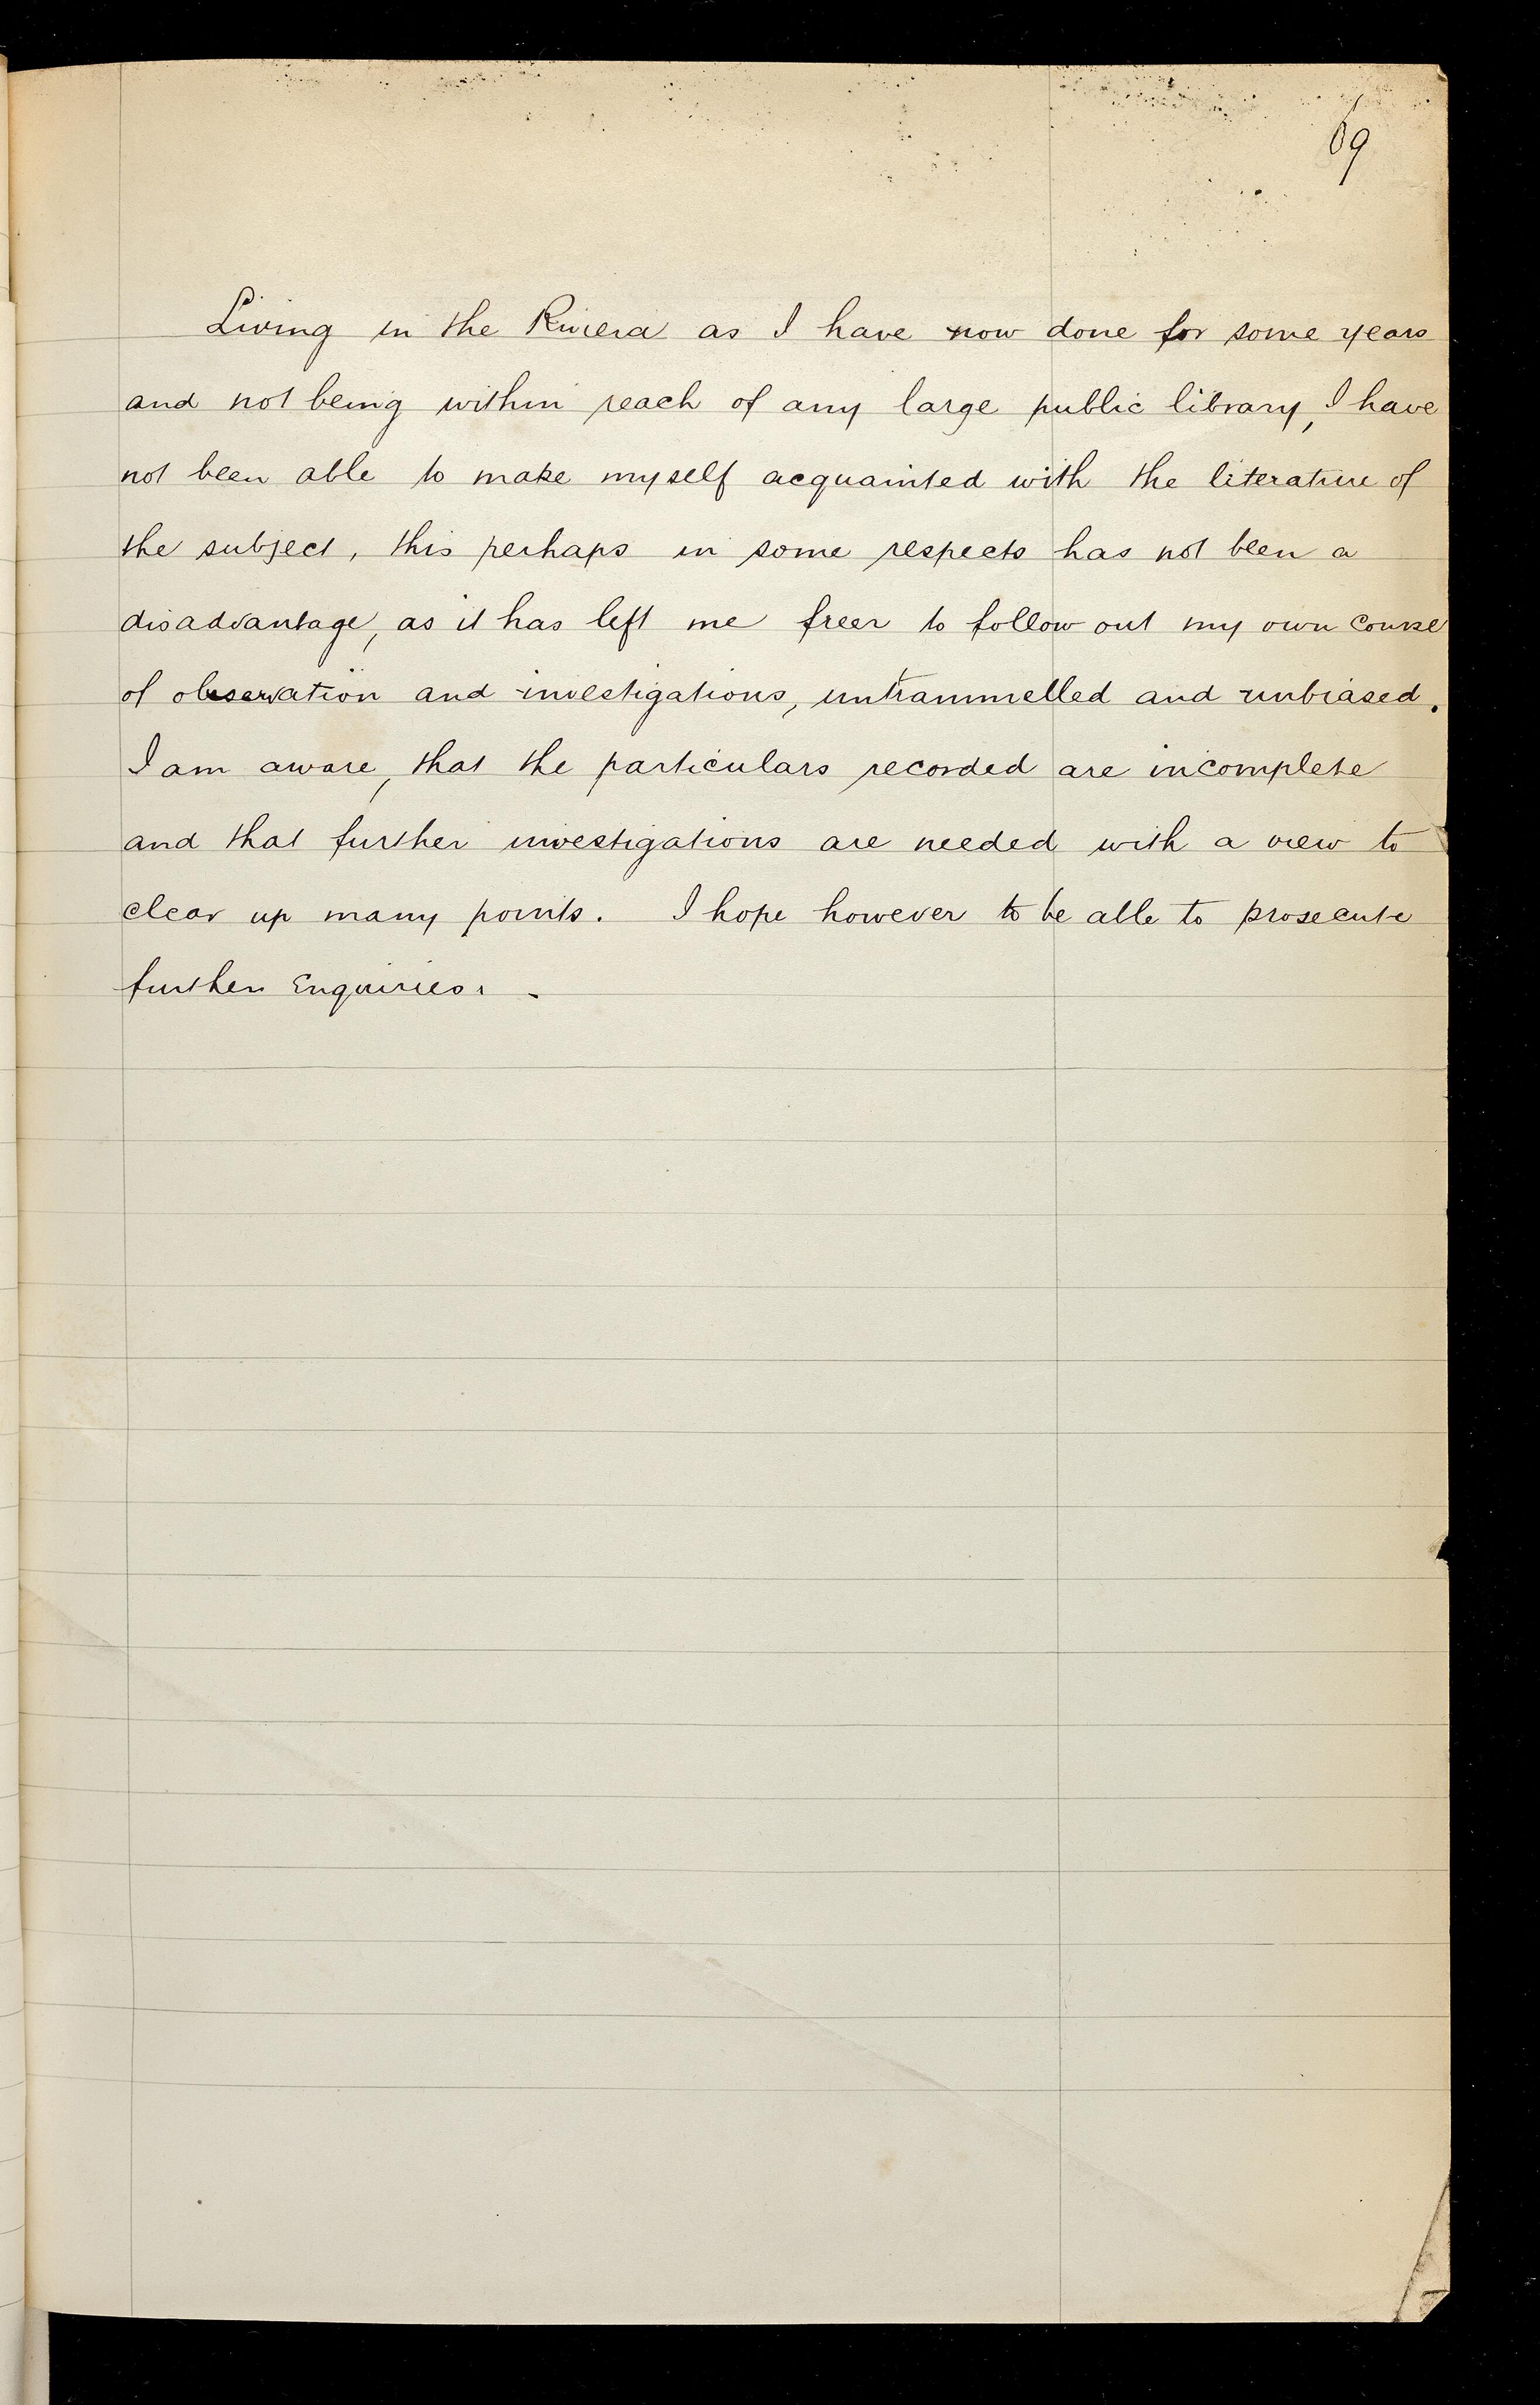 69
Living in the Riviera as I have now done for some years
and not being within reach of any large public library, I have
not been able to make myself acquainted with the literature of
the subject, this perhaps in some respects has not been a
disadvantage, as it has left me freer to follow out my own course
of observation and investigations, untrammelled and unbiased.
I am aware, that the particulars recorded are incomplete
and that further investigations are needed with a view to
clear up many points. I hope however to be able to prosecute
further Enquiries. -